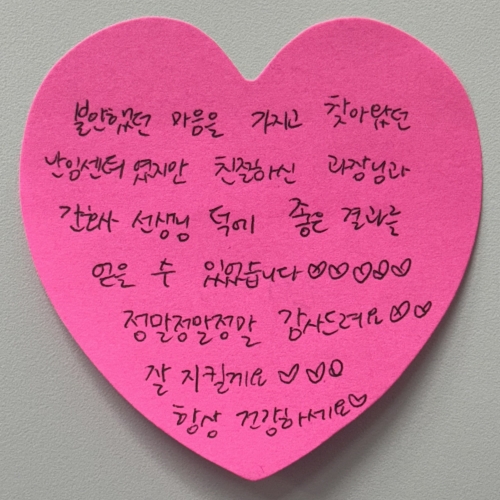 불안했던 마음을 가지고 찾아왔던
난임센터 였지만 친절하신 과장님과
간호사 선생님 덕에 좋은 결과를
얻을 수 있었습니다♡♡♡♡♡
정말정말정말 감사드려요♡♡
잘 지킬게요 ♡♡♡
항상 건강하세요♡